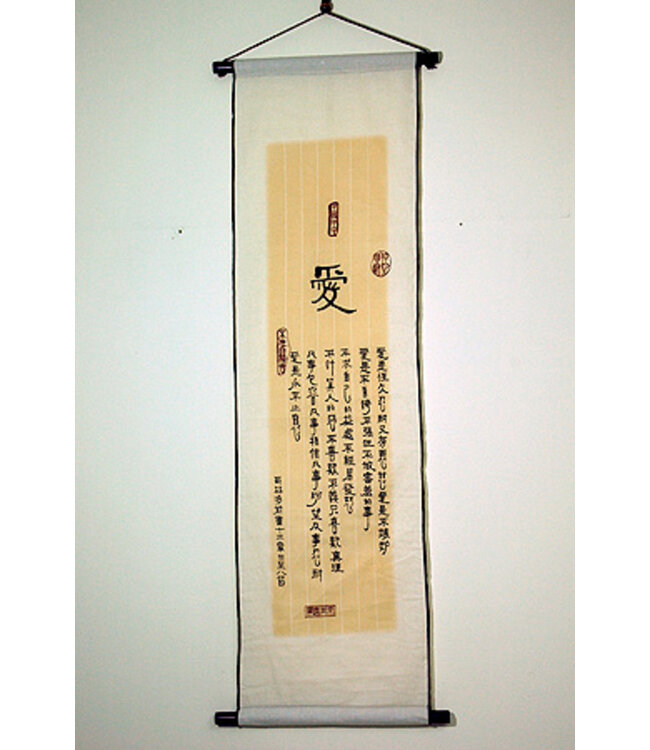 愛
愛是恆久忍耐又有恩慈愛是不嫉妒
愛是不自誇不張狂不做害羞的事
不求自己的益處不輕易發怒
不計算人的惡不喜歡不義只喜歡真理
凡事包容凡事相信凡事盼望凡事忍耐
愛是永不止息
哥林多前書十三章四至八節